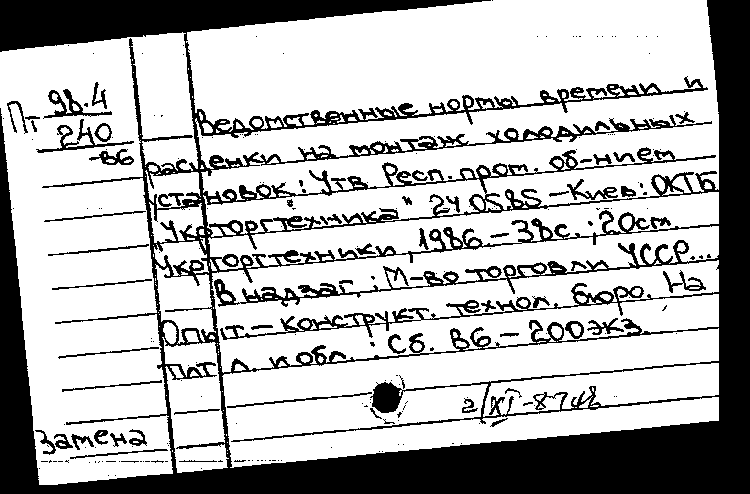 Пт 98.4
240
-В6
Ведомственные нормы времени и
расценки на монтаж холодильных
установок: Утв. Респ. пром. об-нием
"Укрторгтехника" 24.05.85 – Киев: ОКТБ
Укрторгтехники, 1986. – 38с.; 20см.
В надзаг.: М-во торговли УССР...
Опыт. – конструкт. технол. бюро. На
тит. л. и обл.: Сб. В6. – 200 экз.
2/XI-87
Замена